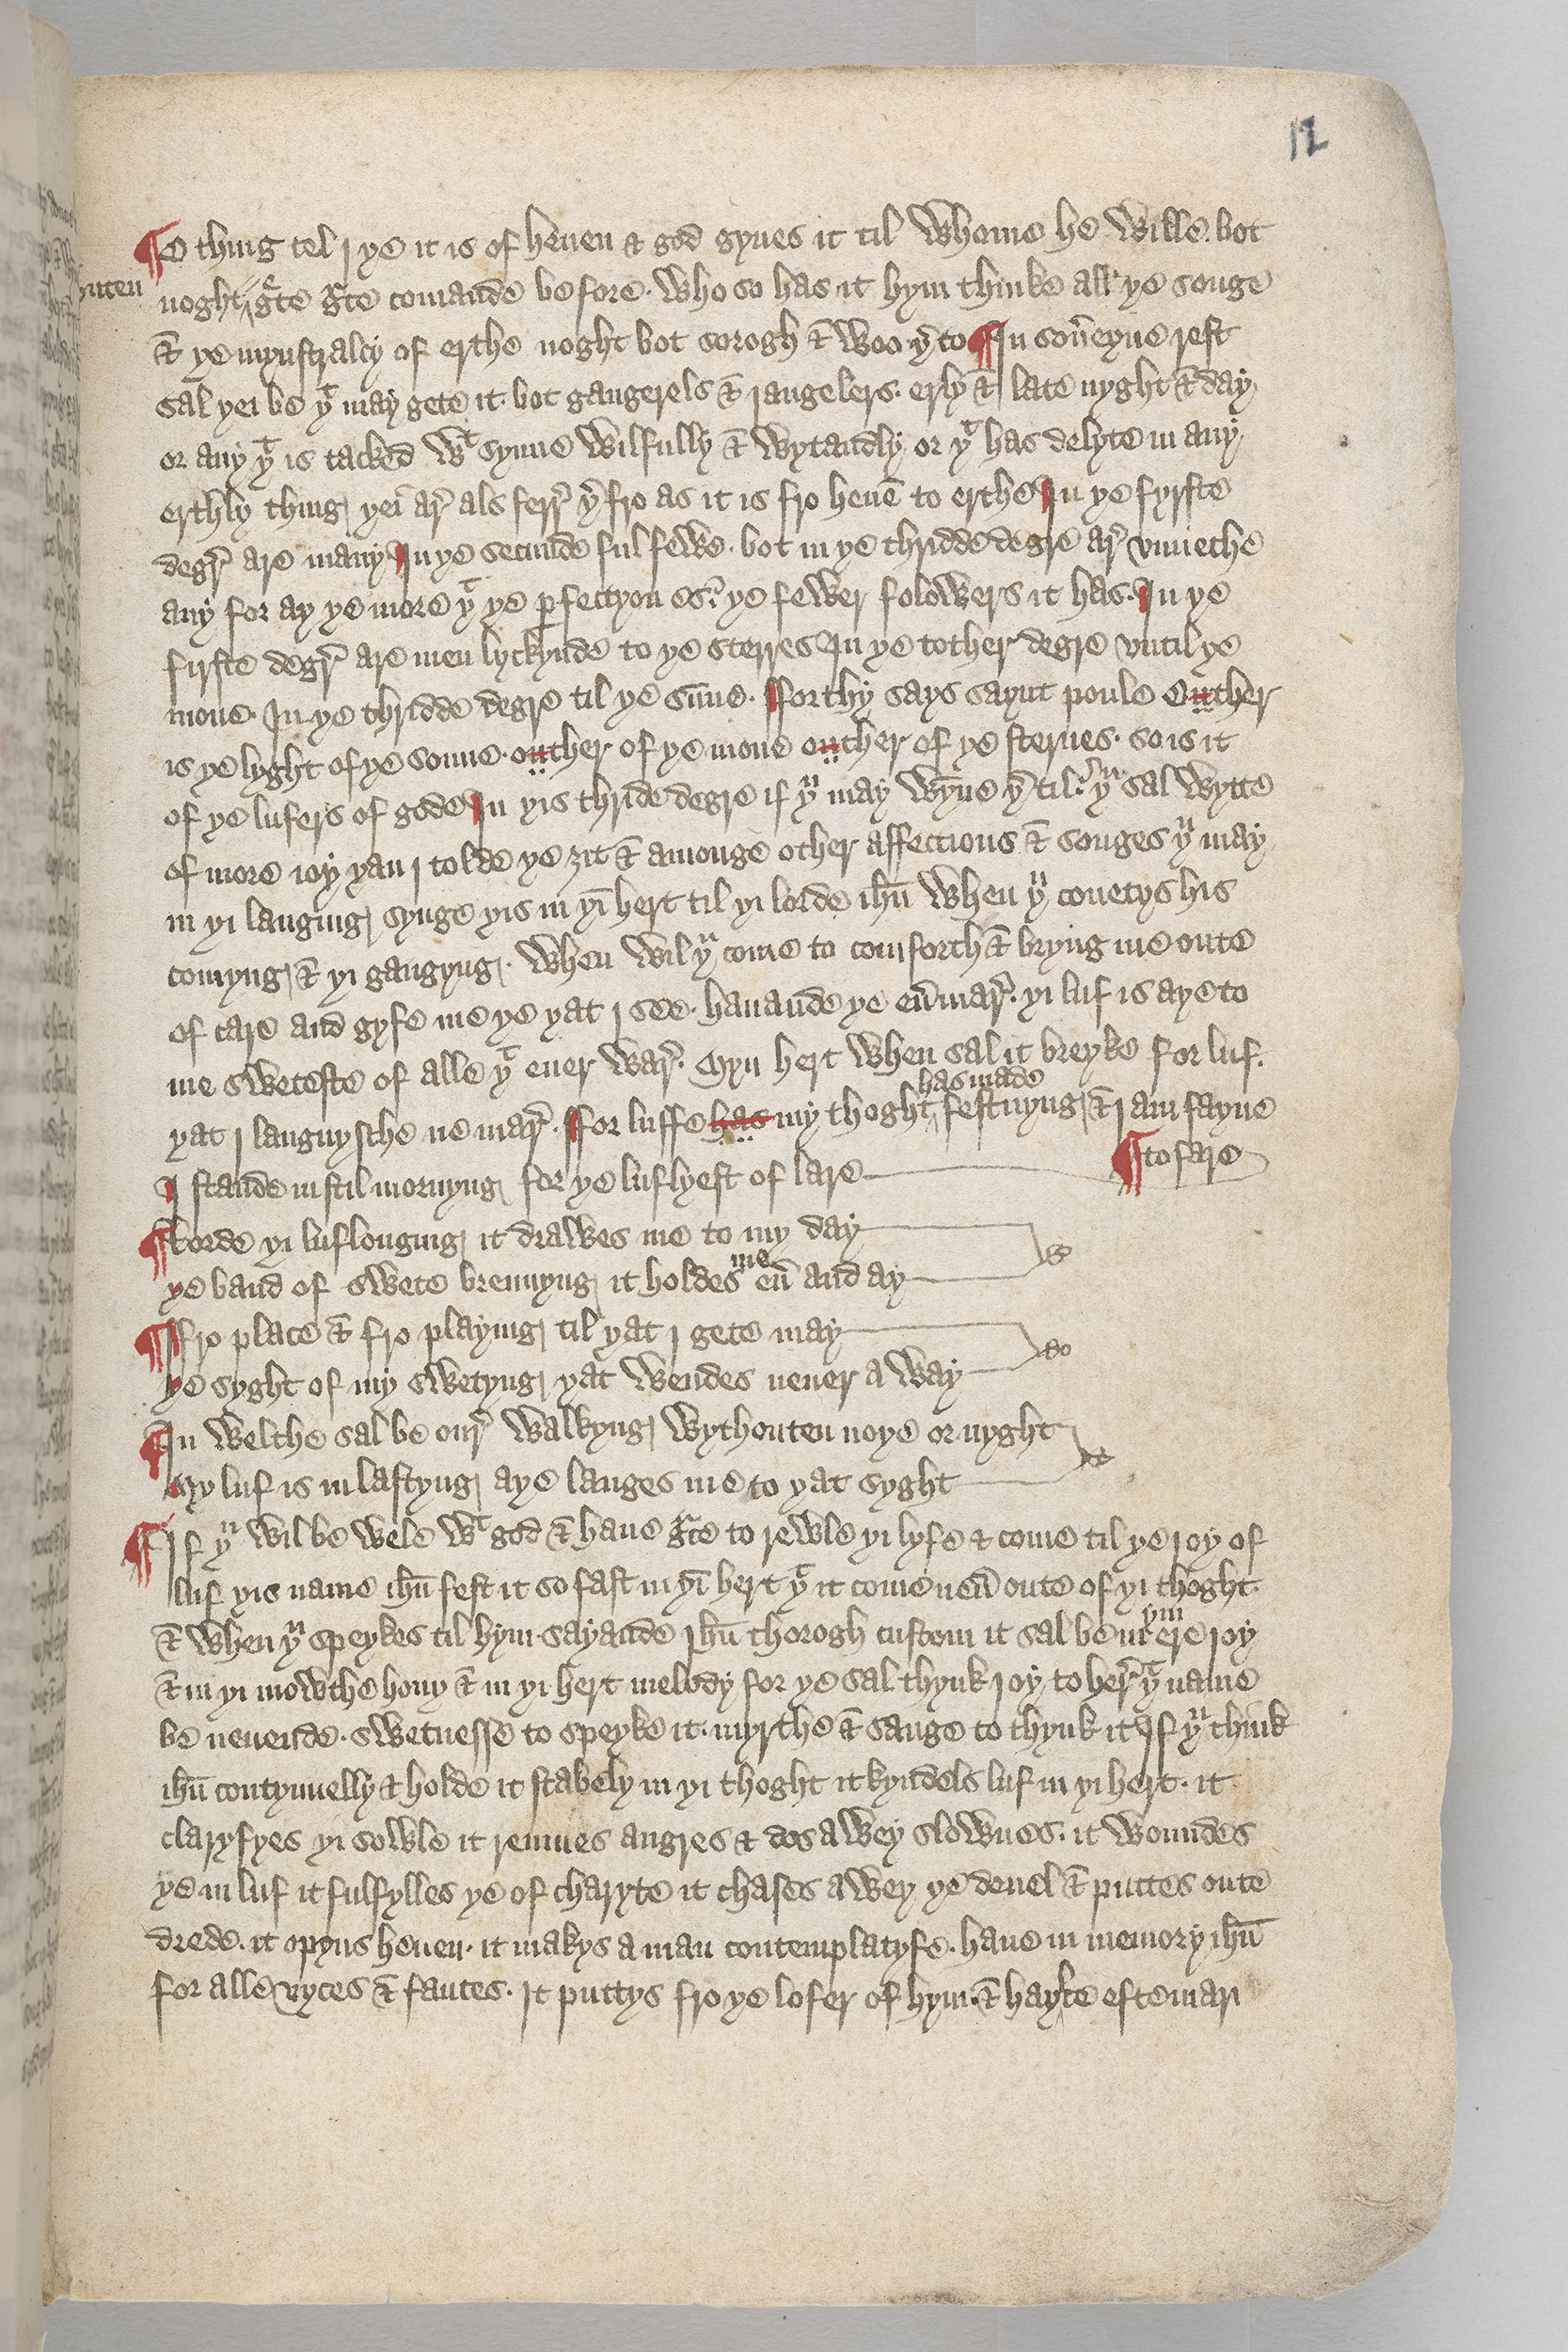 12
O thing tel j ye it is of heuen & god gyues it til whome he wille. bot
outen noght gͣte gͣce comande before. who so has it hym thinke all ye songe
& ye mynstralcy of erthe noght bot sorogh & woo yͬto In soũeyne rest
sal yei be yͭ may gete it. bot gangerels & jangelers. erly & late nyght & day
or any yͭ is tacked wͭ synne wilfully & wytandly or yͭ has delyte in any
erthly thing yei ar̃ als ferr̃ yͬ fro as it is fro heuē to erthe In ye fyrste
degr̃ are many In ye secunde ful fewe. bot in ye thridde degre ar̃ vnnethe
any for ay ye more yͭ ye ꝑfectyon es: ye fewer folowers it has. In ye
firste degr̃ are men lyckynde to ye sterres In ye tother degre vntil ye
mone. In ye thridde degre til ye sūne. fforthy says saynt poule Outher
is ye lyght of ye sonne. outher of ye mone outher of ye sternes. so is it
of ye lufers of gode In yis thride degre if yͧ may wȳne yͬ til: yͧ sal wytte
of more joy yan j tolde ye zit & amonge other affections & songes yͧ may
in yi langing synge yis in yī hert til yi lorde ihū When yͧ couetys his
comyng & yi gangyng. When wil yͧ come to comforth & bryng me oute
of care and gyfe me ye yat j see. hauande ye eũmar̃. yi luf is aye to
me sweteste of alle yͭ euer war̃. Myn hert when sal it breyke for luf.
yat j languysche ne mar̃. ffor luffe has my thoght has made festnyng & j am fayne
¶ to fare
I stande in stil mornyng for ye luflyest of lare
Lorde yi luflonging it drawes me to my day
ye band of swete brennyng it holdes me eũ and ay
ffro place & fro playing til yat j gete may
ye syght of my swetyng yat wendes neuer a way
In welthe sal be our̃ walkyng wythouten noye or nyght
My luf is in lastyng aye langes me to yat syght
¶ If yͧ wil be wele wͭ god & haue gͣce to rewle yi lyfe & come til ye joy of
luf yis name ihū fest it so fast in yī hert yͭ it come neũ oute of yi thoght.
& when yͧ speykes til hym. sayande jhū thorogh custom it sal be in yin ere joy
& in yi mowthe hony & in yi hert melody for ye sal thynk joy to her̃ yͭ name
be neuende. swetnesse to speyke it. myrthe & sange to thynk it If yͧ think
ihū contynuelly & holde it stabely in yi thoght it kyndels luf in yi hert. it
claryfyes yi sowle it remues angres & dos a wey slownes. it woundes
ye in luf it fulfylles ye of charyte it chases a wey ye deuel & puttes oute
drede. it opyns heuen. it makys a man contemplatyfe. haue in memory ihū
for alle vyces & fautes. it puttys fro ye lofer of hym. & haylce eftemari